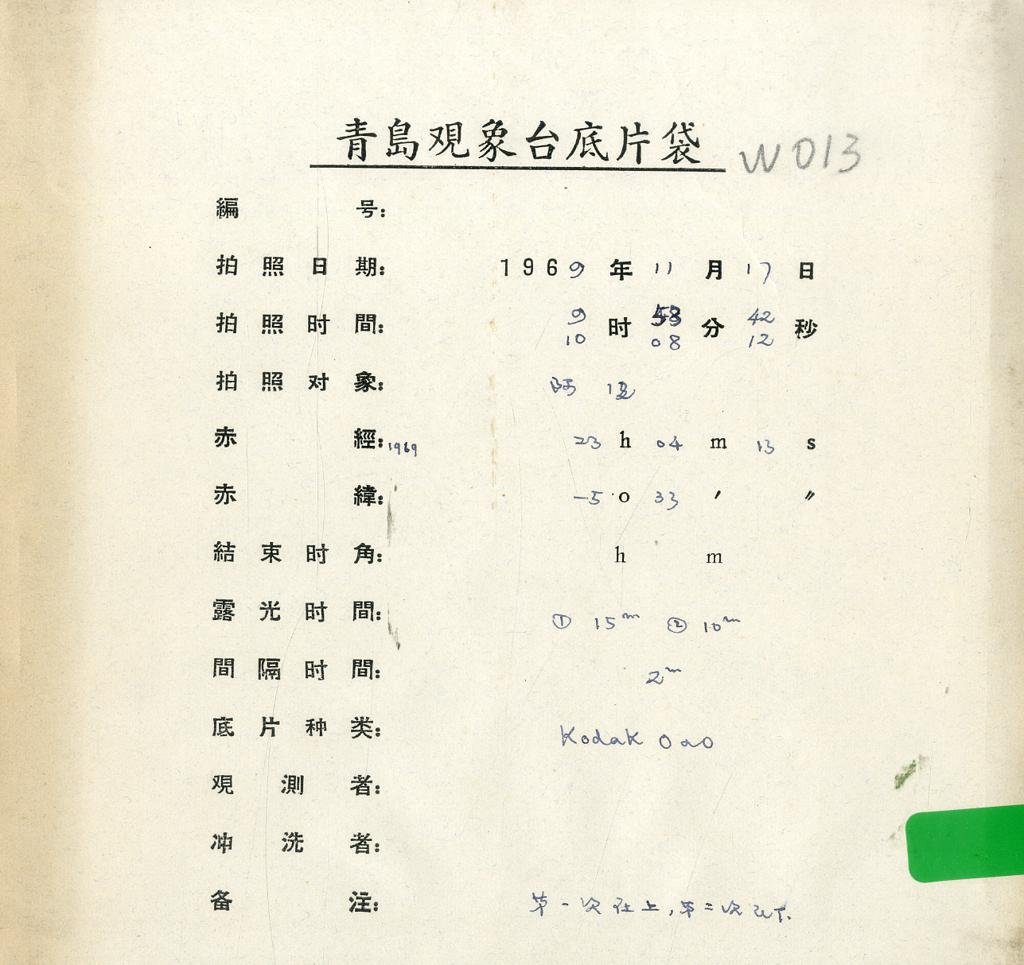 青島观象台底片袋 W013
編号:
拍照日期: 1969年11月17日
拍照时間: 9时58分42秒
10 08 12
拍照对象:
赤經:1969 23h 04m 13s
赤緯: -5o 33′ ″
結束时角: h m
露光时間: ① 15m ② 10m
間隔时間: 2m
底片种类: Kodak OaO
观測者:
冲洗者:
备注: 第一次在上,第二次在下.